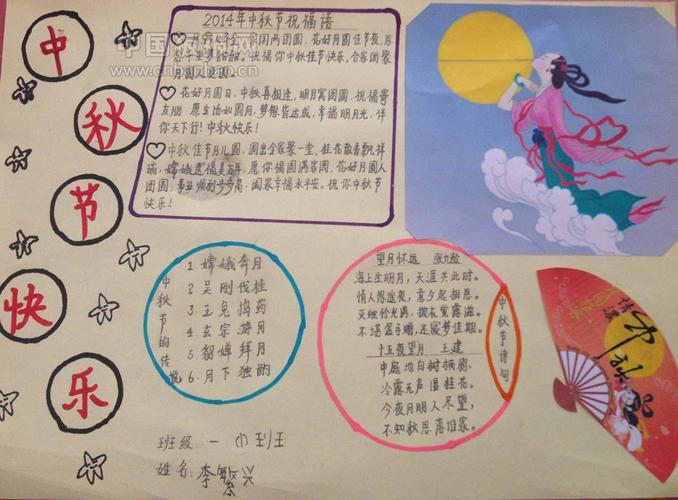 中
秋
节
快
乐
2014年中秋节祝福语
月圆人圆
家国两团圆,花好月圆佳节夜,
祝福你中秋佳节快乐,合家团聚
花好月圆日,中秋喜相逢,明月寓团圆,祝福寄
友朋,愿生活如圆月,梦想皆达成,幸福明月光,伴
你天下行!中秋快乐!
中秋佳节月儿圆,圆出全家聚一堂,桂花散香兆祥
瑞,嫦娥送福美万年,愿你福圆满家圆,花好月圆人
团圆,步步高,国家幸福永平安。祝你中秋节
快乐!
中秋节的传说
1 嫦娥奔月
2 吴刚伐桂
3 玉兔捣药
4 玄宗游月
5 貂婵拜月
6.月下独酌
望月怀远 张九龄
海上生明月,天涯共此时。
情人怨遥夜,竟夕起相思。
灭烛怜光满,披衣觉露滋。
不堪盈手赠,还寝梦佳期。
十五夜望月 王建
中庭地白树栖鸦,
冷露无声湿桂花。
今夜月明人尽望,
不知秋思落谁家。
中秋节诗句
情满
中秋
班级 一(1)班
姓名:李繁兴